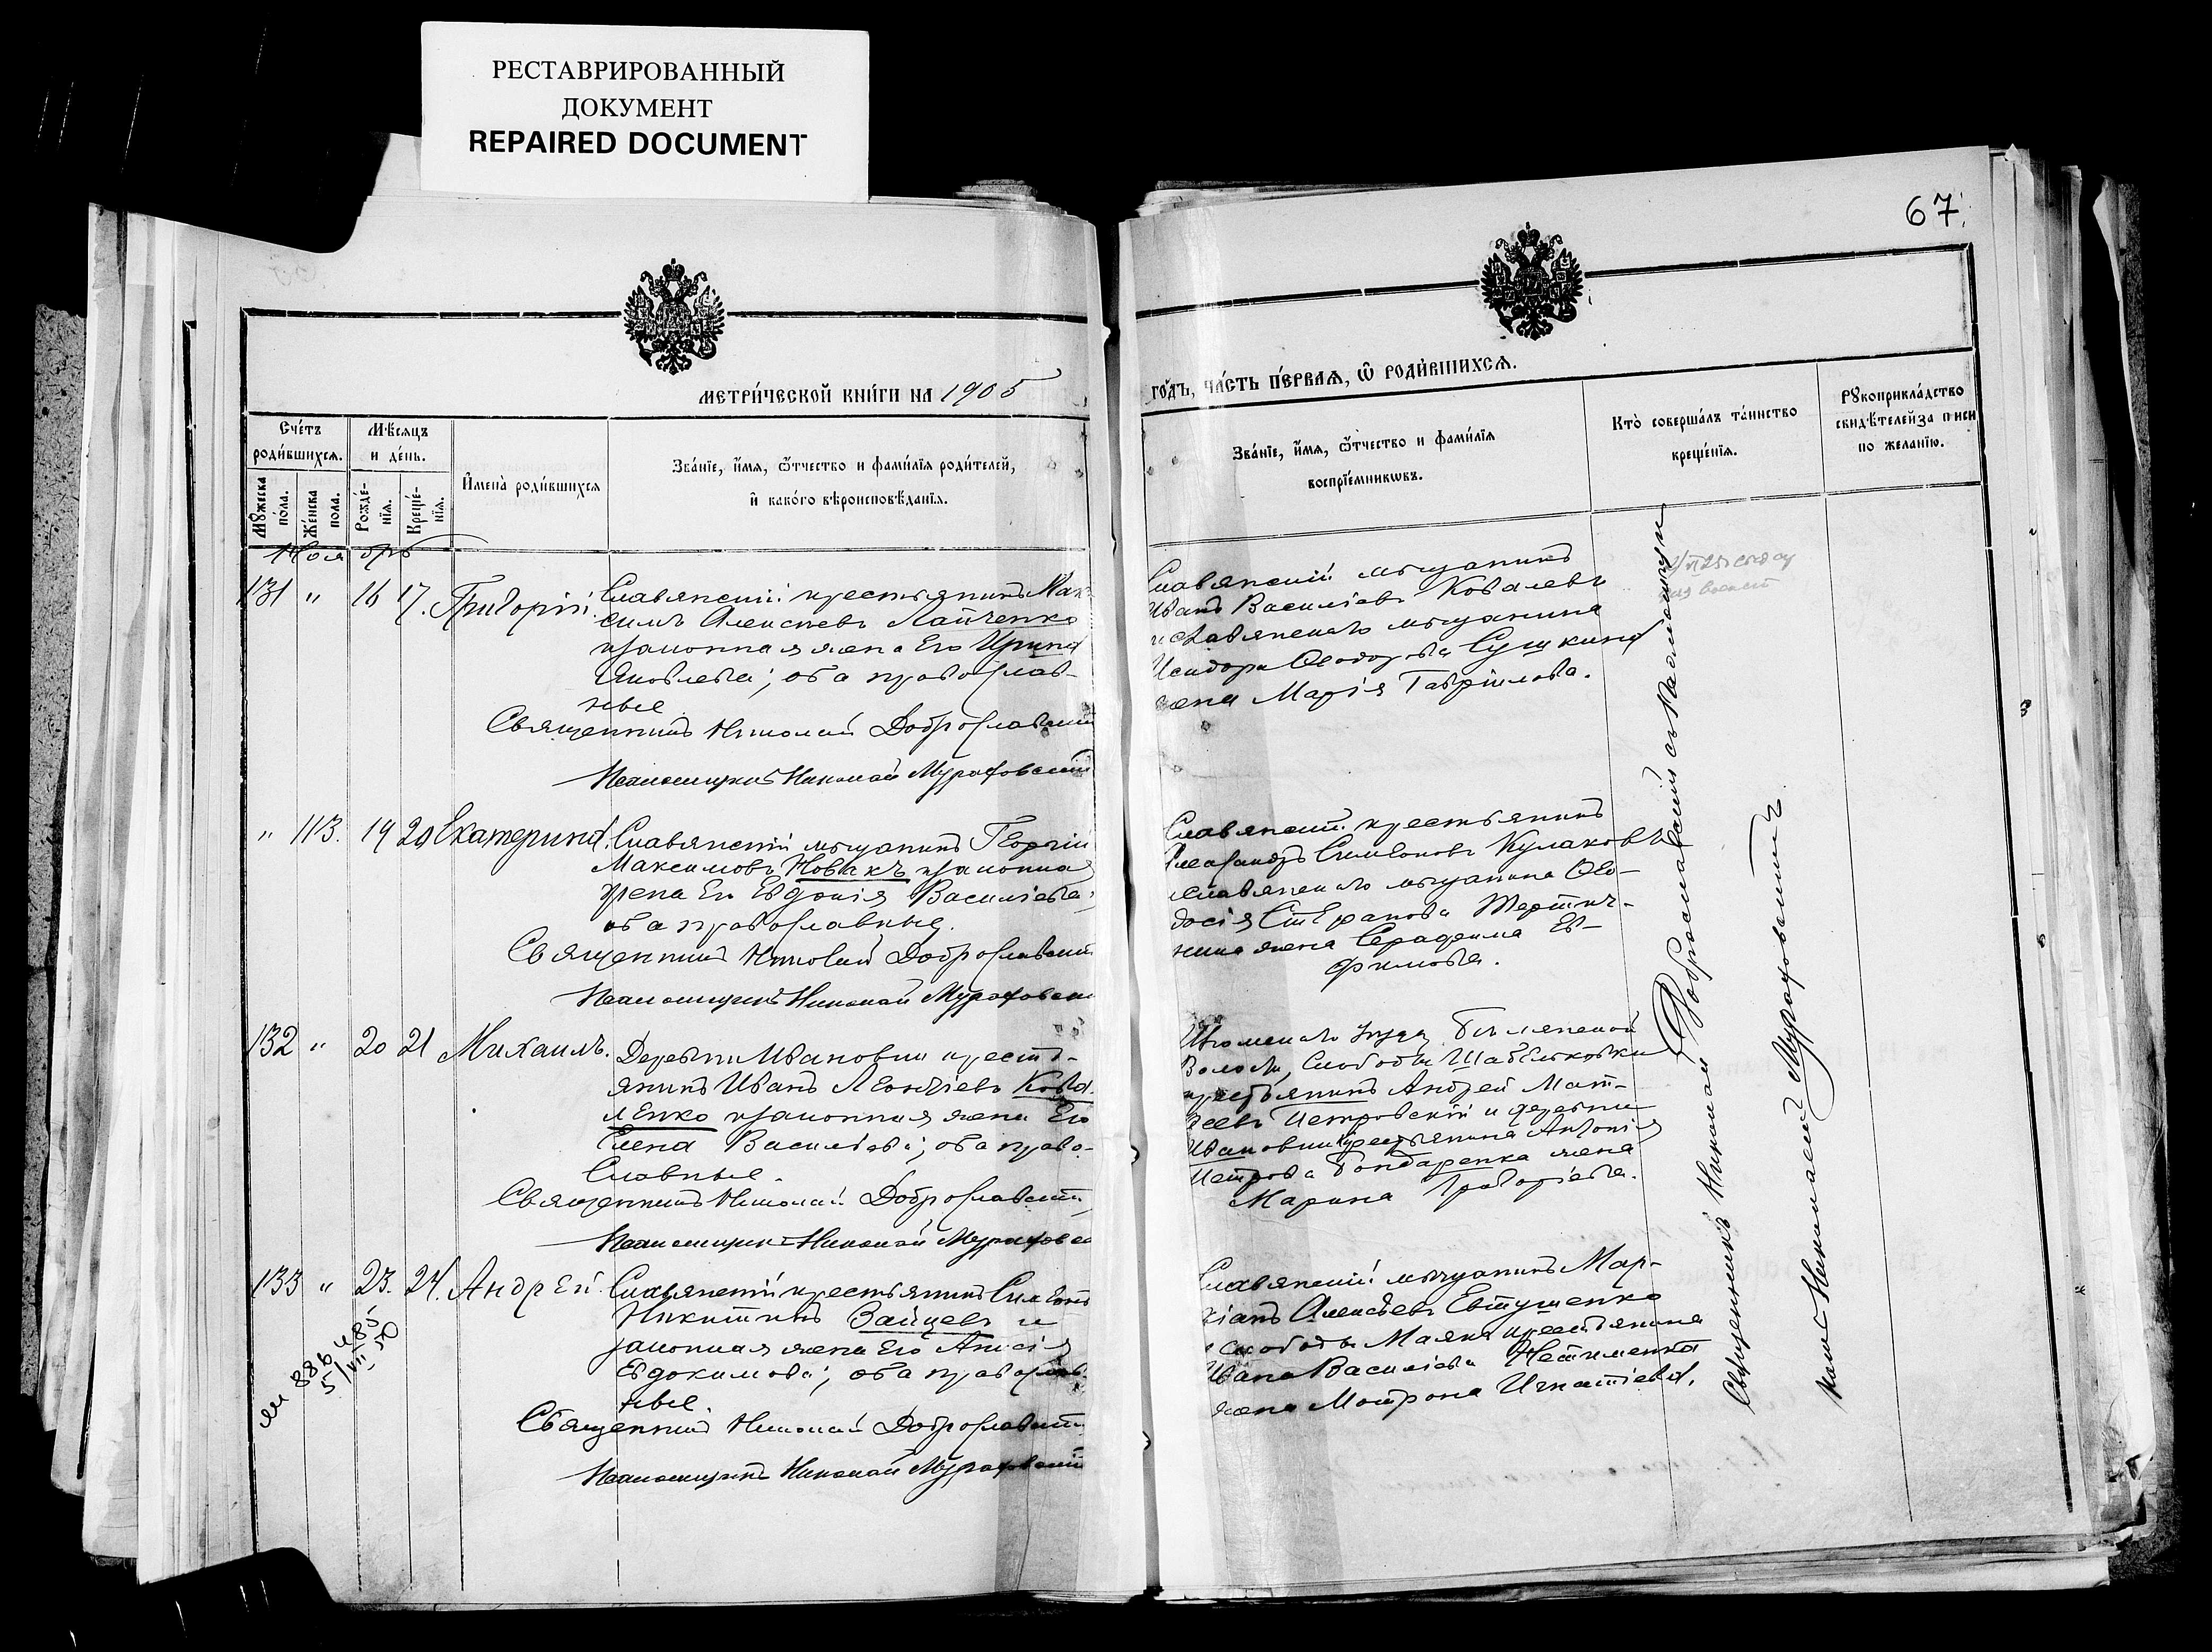 РЕСТАВРИРОВАННЫЙ
ДОКУМЕНТ
REPAIRED DOCUMENT
67
МЕТРИ́ЧЕСКОЙ КНИ́ГИ НА 1905
ГО́ДЪ, ЧА́СТЬ ПЕ́РВАѦ, Ѿ РОДИ́ВШИХСѦ.
Сче́тъ
роди́вшихсѧ.
Мꙋ́жеска
по́ла.
Же́нска
пола.
Мѣ́сѧцъ
и де́нь.
Рожде́-
нїѧ.
Креще́-
нїѧ.
И҆мена̀ роди́вшихсѧ
Зва́нїе, и҆́мѧ, ѻ҆́тчество и фами́лїѧ роди́телей,
и҆ како́го вѣроисповѣ́данїѧ.
Зва́нїе, и҆́мѧ, ѻ҆́тчество и фами́лїѧ
воспрїе́мникѡвъ.
Кто̀ соверша́лъ та́инство
креще́нїѧ.
Рꙋкоприкла́дство
свидѣ́телей за писи
по жела́нїю.
Ноябрь
131 " 16 17. Григорій.
Славянскій крестьянинъ Мак-
симъ Алексѣевъ Лайченко
законная жена его Ирина
Яковлева; оба православ-
ные
Священникъ Николай Доброславскій
Псаломщикъ Николай Мурафовскій
Славянскій мѣщанинъ
Иванъ Василіевъ Ковалевъ
и славянскаго мѣщанина
Исидора Ѳеодорова Сушкина
жена Марія Гавріилова.
" 113. 19 20 Екатерина.
Славянскій мѣщанинъ Георгій
Максимовъ Новакъ законная
жена его Евдокія Василіева;
оба православные.
Священникъ Николай Доброславскій
Псаломщикъ Николай Мурафовскій
Славянскій крестьянинъ
Александръ Симеоновъ Кулаковъ
и славянскаго мѣщанина Ѳео-
досія Стефанова
жена Серафима Ев-
фимова.
132 " 20 21 Михаилъ.
Деревни Ивановки кресть-
янинъ Иванъ Леонтіевъ Кова-
ленко законная жена его
Елена Василіева; оба право-
славные.
Священникъ Николай Доброславскій
Псаломщикъ Николай Мурафовскій
Изюмскаго уѣзда,
Волости, Слободы Шабельковки
крестьянинъ Андрей Мат-
ѳеевъ Петровскій и деревни
Ивановки крестьянина Антонія
Петрова Бондаренка жена
Марина Григоріева.
133 " 23. 24. Андрей.
Славянскій крестьянинъ Симеонъ
Никитинъ Зайцевъ и
законная жена его Анисія
Евдокимова; оба православ-
ные.
Священникъ Николай Доброславскій
Псаломщикъ Николай Мурафовскій
5/VII 50
Славянскій мѣщанинъ Мар-
кіанъ Алексѣевъ Евтушенко
и слободы Маякъ крестьянина
Ивана Василіева
жена Мотрона Игнатіева.
Священникъ Николай Доброславскій съ псаломщикомъ
Николаемъ Мурафовскимъ